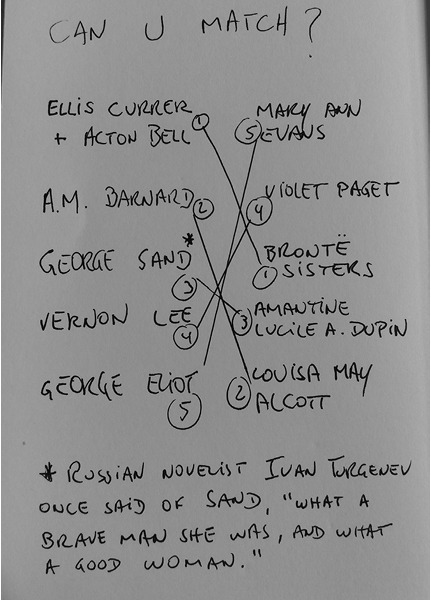 CAN U MATCH?
ELLIS CURRER
+ ACTON BELL 1
A.M. BARNARD 2
GEORGE SAND*
3
VERNON LEE
4
GEORGE ELIOT
5
MARY ANN
5 EVANS
VIOLET PAGET
4
BRONTË
1 SISTERS
AMANTINE
3 LUCILE A. DUPIN
LOUISA MAY
2 ALCOTT
* RUSSIAN NOVELIST IVAN TURGENEV
ONCE SAID OF SAND, "WHAT A
BRAVE MAN SHE WAS, AND WHAT
A GOOD WOMAN."